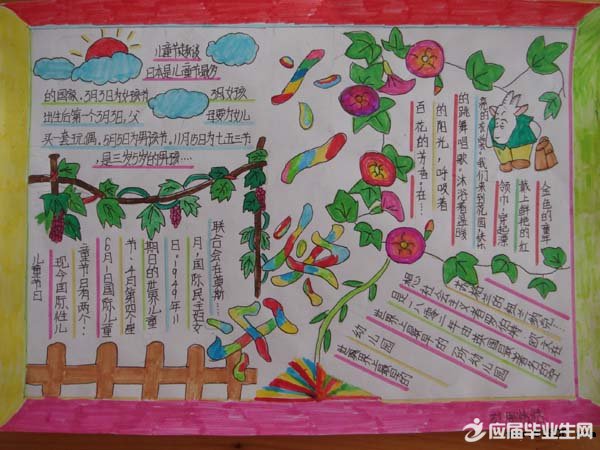 儿童节趣谈
日本是儿童节最多
的国家，3月3日为女孩节
3岁女孩
出生后第一个3月3日，父
母要为女儿
买一套玩偶，5月5日为男孩节，11月15日为七五三节
是三岁5岁的男孩……
儿童节日
现今国际性儿
童节只有两个：
6月1日国际儿童
节，4月第四个星
期日的世界儿童
日。1949年11
月，国际民主妇女
联合会在莫斯……
金色的童年
戴上鲜艳的红
领巾，穿起漂
亮的衣裳，我们来到花园，快乐
的跳舞唱歌，沐浴着温暖
的阳光，呼吸着
百花的芳香，在…
世界上最早的
幼儿园
世界上最早的一所幼儿园
是一八零二年由英国最著名的空
想社会主义者罗伯特·欧文在
苏格兰的
应届毕业生网
YJBYS.COM